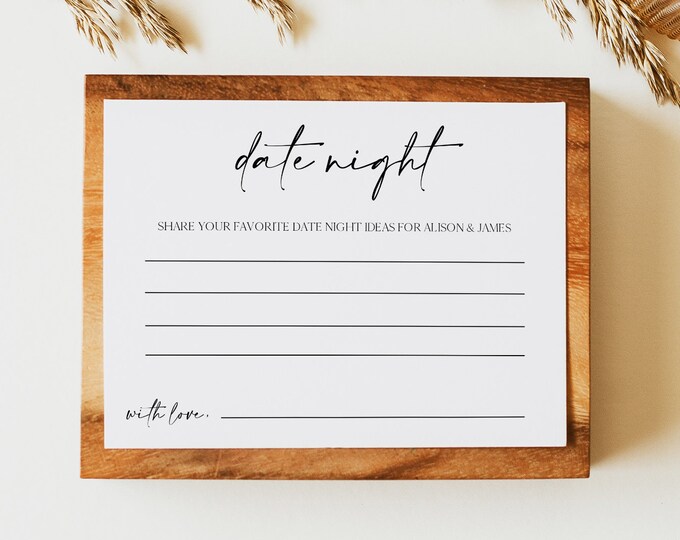 date night
SHARE YOUR FAVORITE DATE NIGHT IDEAS FOR ALISON & JAMES
with love,